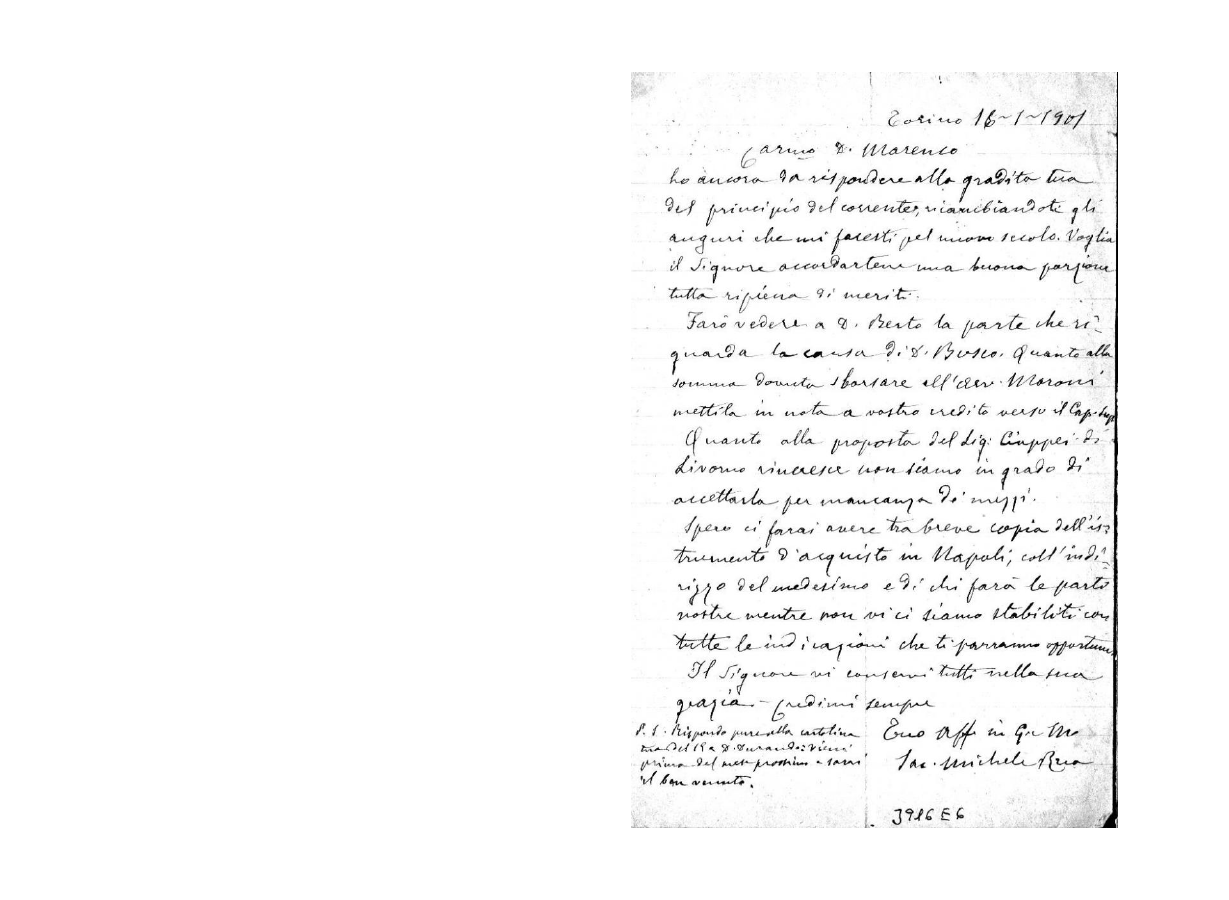 Torino 16-1-1901
Carmo D. Marenco
ho ancora da rispondere alla gradita tua
del principio del corrente, ricambiandoti gli
auguri che mi facesti pel nuovo secolo. Voglia
il Signore accordartene una buona porzione
tutta ripiena di meriti.
Farò vedere a D. Berto la parte che ri-
guarda la causa di D. Bosco. Quanto alla
somma dovuta sborsare all'Avv. Moroni
mettila in nota a vostro credito verso il Cap. Sup.
Quanto alla proposta del Sig. Ciappei di
Livorno rincresce non siamo in grado di
accettarla per mancanza di mezzi.
Spero ci farai avere tra breve copia dell'is-
trumento d'acquisto in Napoli, coll'indi-
rizzo del medesimo e di chi farà le parti
nostre mentre non vi ci siamo stabiliti con
tutte le indicazioni che ti parranno opportune
Il Signore vi conservi tutti nella sua
grazia - Credimi sempre
Tuo Aff in G. e Ma
Sac. Michele Rua
P. S. Rispondo pure alla cartolina
tua del 14 a D. Durando: Vieni
prima del mese prossimo e sarai
il ben venuto.
3916 E 6